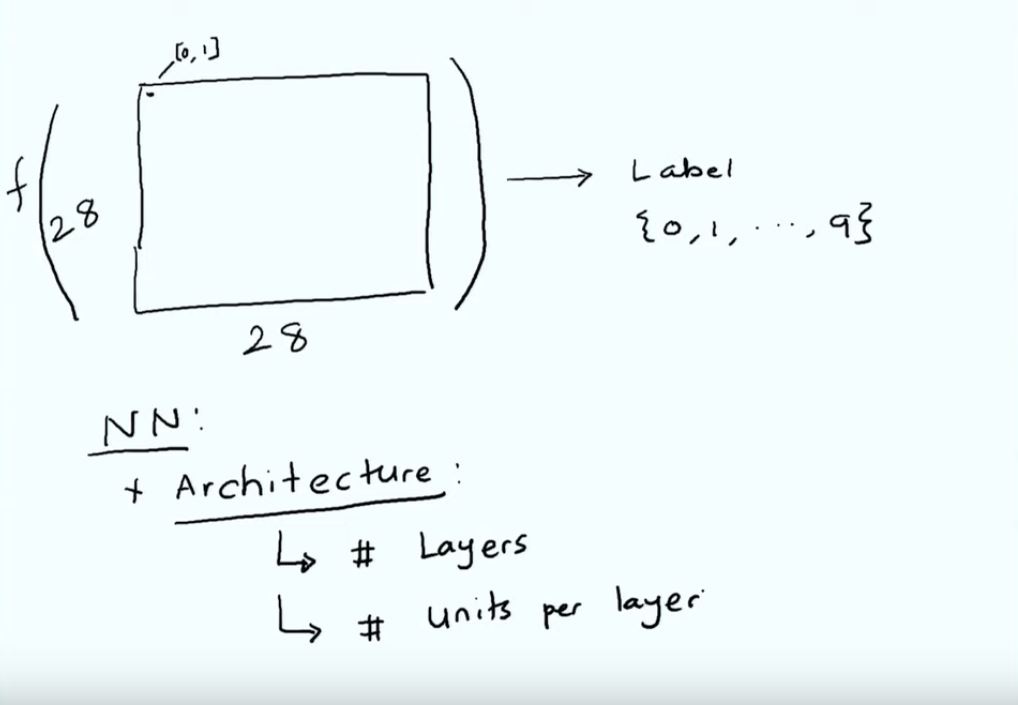 [0,1]
f(
28
) → Label
{0,1, ..., 9}
28
NN:
+ Architecture:
↳ # Layers
↳ # units per layer